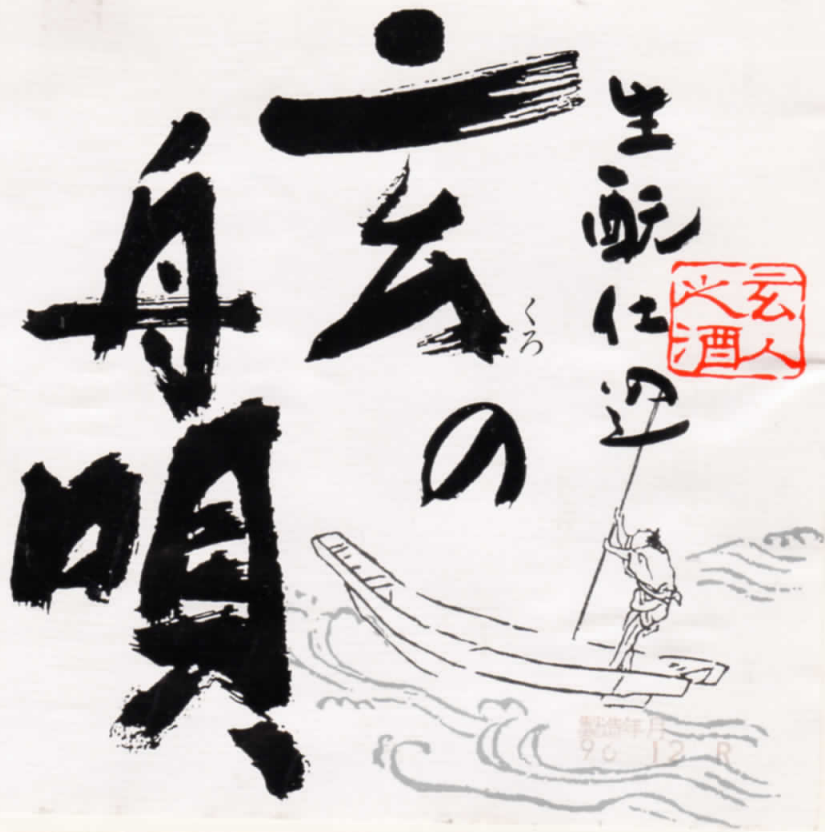 生酛仕込
玄人
之酒
玄の
くろ
舟唄
製造年月
96 12 R